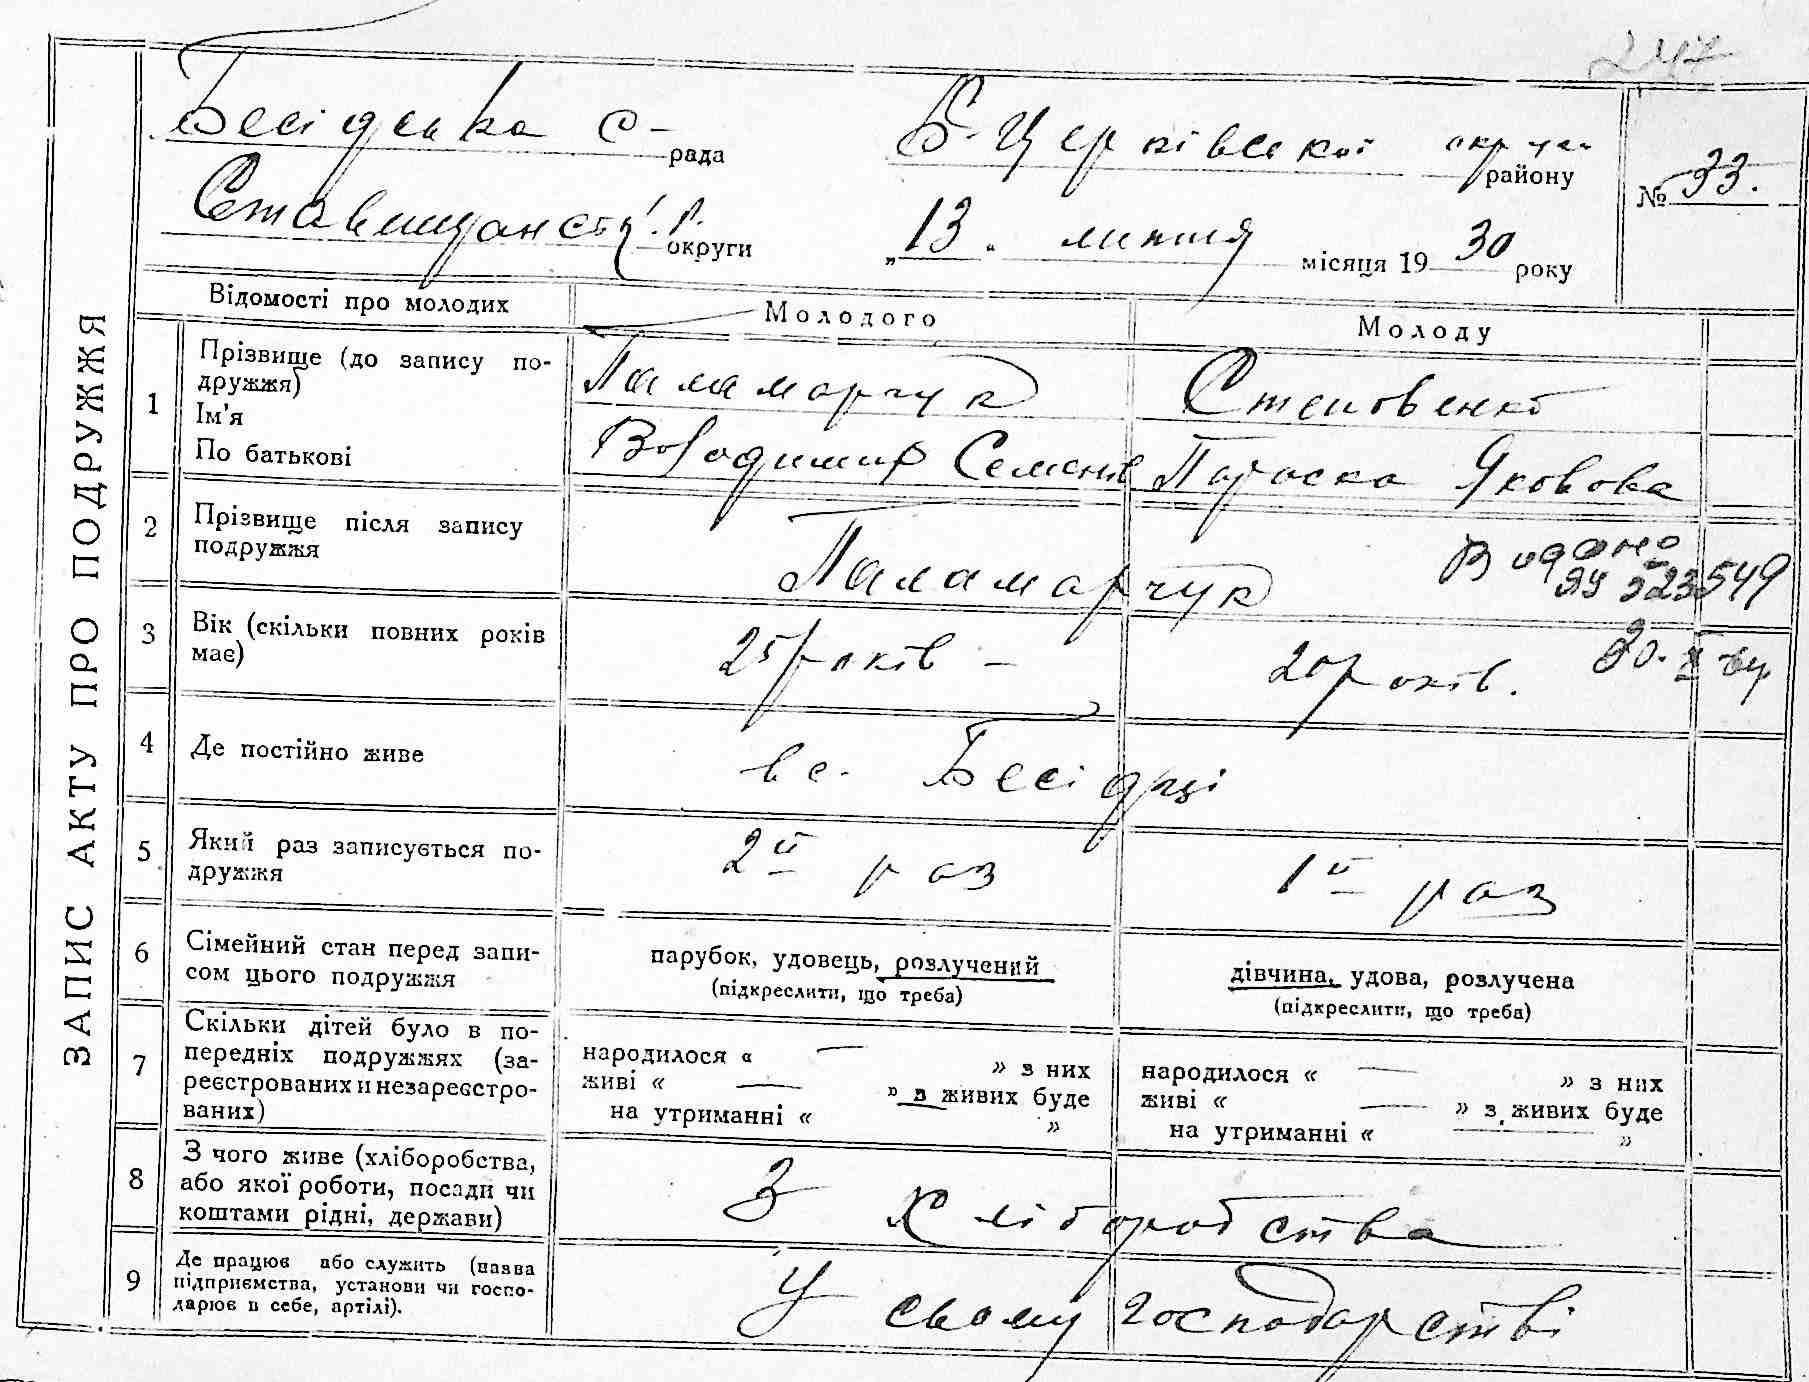 247
Бесідська с- рада
Б-Церківської округи району
№ 33.
Ставищанськ. р. округи
„13" липня місяця 1930 року
ЗАПИС АКТУ ПРО ПОДРУЖЖЯ
Відомості про молодих
Молодого
Молоду
1
Прізвище (до запису по-
дружжя)
Ім'я
По батькові
Паламарчук
Володимир Семенів
Степовенко
Параска Яковова
2
Прізвище після запису
подружжя
Паламарчук
Видано
ЯУ 523549
3
Вік (скільки повних років
має)
25 років –
20 років.
4
Де постійно живе
в с. Бесідці
5
Який раз записується по-
дружжя
2й раз
1й раз
6
Сімейний стан перед запи-
сом цього подружжя
парубок, удовець, розлучений
(підкреслити, що треба)
дівчина, удова, розлучена
(підкреслити, що треба)
7
Скільки дітей було в по-
передніх подружжях (за-
реєстрованих и незареєстро-
ваних)
народилося « — » з них
живі « — » з живих буде
на утриманні « »
народилося « — » з них
живі « — » з живих буде
на утриманні « »
8
З чого живе (хліборобства,
або якої роботи, посади чи
коштами рідні, держави)
З хліборобства
9
Де працює або служить (назва
підприємства, установи чи госпо-
дарює в себе, артілі).
У своему господарстві